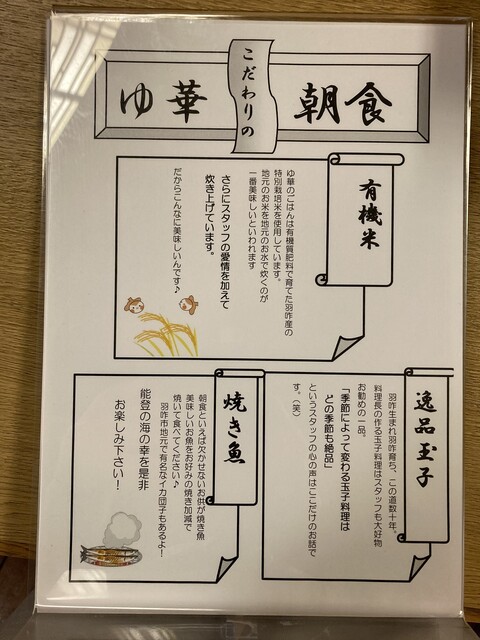 ゆ華
こだわりの
朝食
有機米
ゆ華のごはんは有機質肥料で育てた羽咋産の
特別栽培米を使用しています。
地元のお米を地元のお水で炊くのが
一番美味しいといわれます
さらにスタッフの愛情を加えて
炊き上げています。
だからこんなに美味しいんです♪
逸品玉子
羽咋生まれ羽咋育ち、この道数十年。
料理長の作る玉子料理はスタッフも大好物
お勧めの一品。
「季節によって変わる玉子料理は
どの季節も絶品」
というスタッフの心の声はここだけのお話で
す。（笑）
焼き魚
朝食といえば欠かせないお供が焼き魚
美味しいお魚をお好みの焼き加減で
焼いて食べてください♪
羽咋市地元で有名なイカ団子もあるよ！
能登の海の幸を是非
お楽しみ下さい！